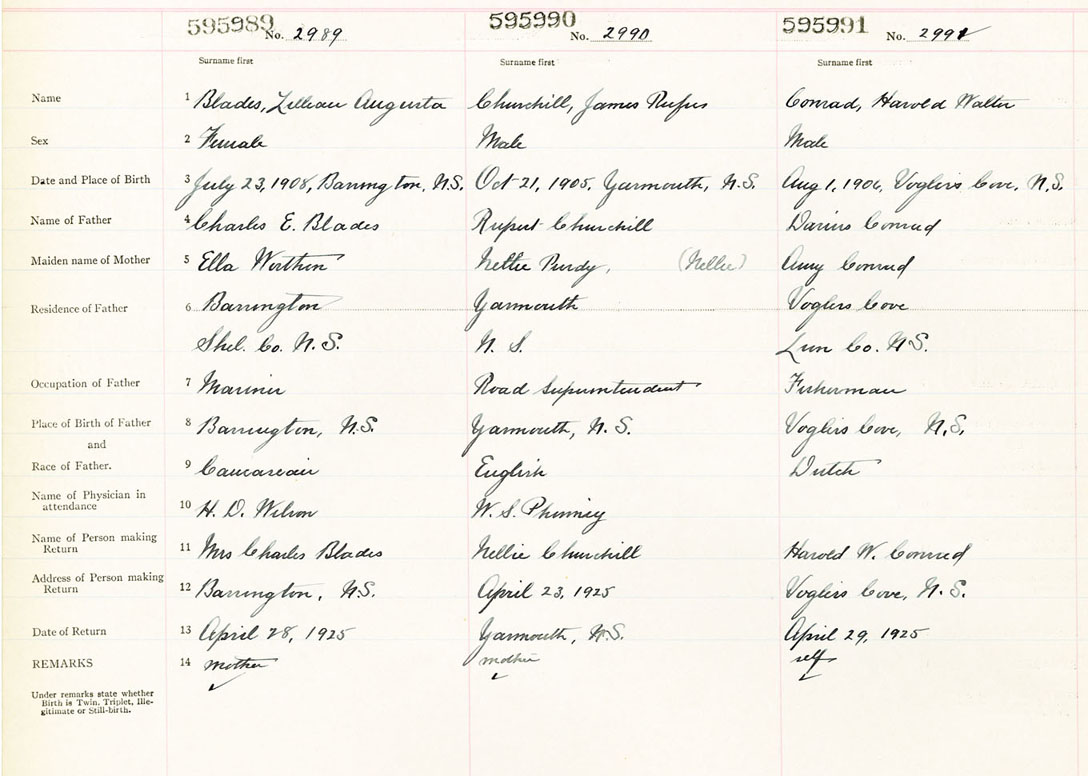 595989 No. 2989 595990 No. 2990 595991 No. 2991
Surname first Surname first Surname first
Name 1 Blades, Lillian Augusta Churchill, James Rufus Conrad, Harold Walter
Sex 2 Female Male Male
Date and Place of Birth 3 July 23, 1908, Barrington, N.S. Oct 21, 1905, Yarmouth, N.S. Aug 1, 1906, Voglers Cove, N.S.
Name of Father 4 Charles E. Blades Rupert Churchill Darius Conrad
Maiden name of Mother 5 Ella Worthen Nettie Purdy, (Nellie) Amy Conrad
Residence of Father 6 Barrington Yarmouth Voglers Cove
Shel. Co. N.S. N. S. Lun Co. N.S.
Occupation of Father 7 Mariner Road Superintendent Fisherman
Place of Birth of Father 8 Barrington, N.S. Yarmouth, N.S. Voglers Cove, N.S.
and
Race of Father. 9 Caucasian English Dutch
Name of Physician in
attendance 10 H. D. Wilson W. S. Phinney
Name of Person making
Return 11 Mrs Charles Blades Nellie Churchill Harold W. Conrad
Address of Person making
Return 12 Barrington, N.S. April 23, 1925 Voglers Cove, N.S.
Date of Return 13 April 28, 1925 Yarmouth, N.S. April 29, 1925
REMARKS 14 mother mother self
Under remarks state whether
Birth is Twin, Triplet, Ille-
gitimate or Still-birth.